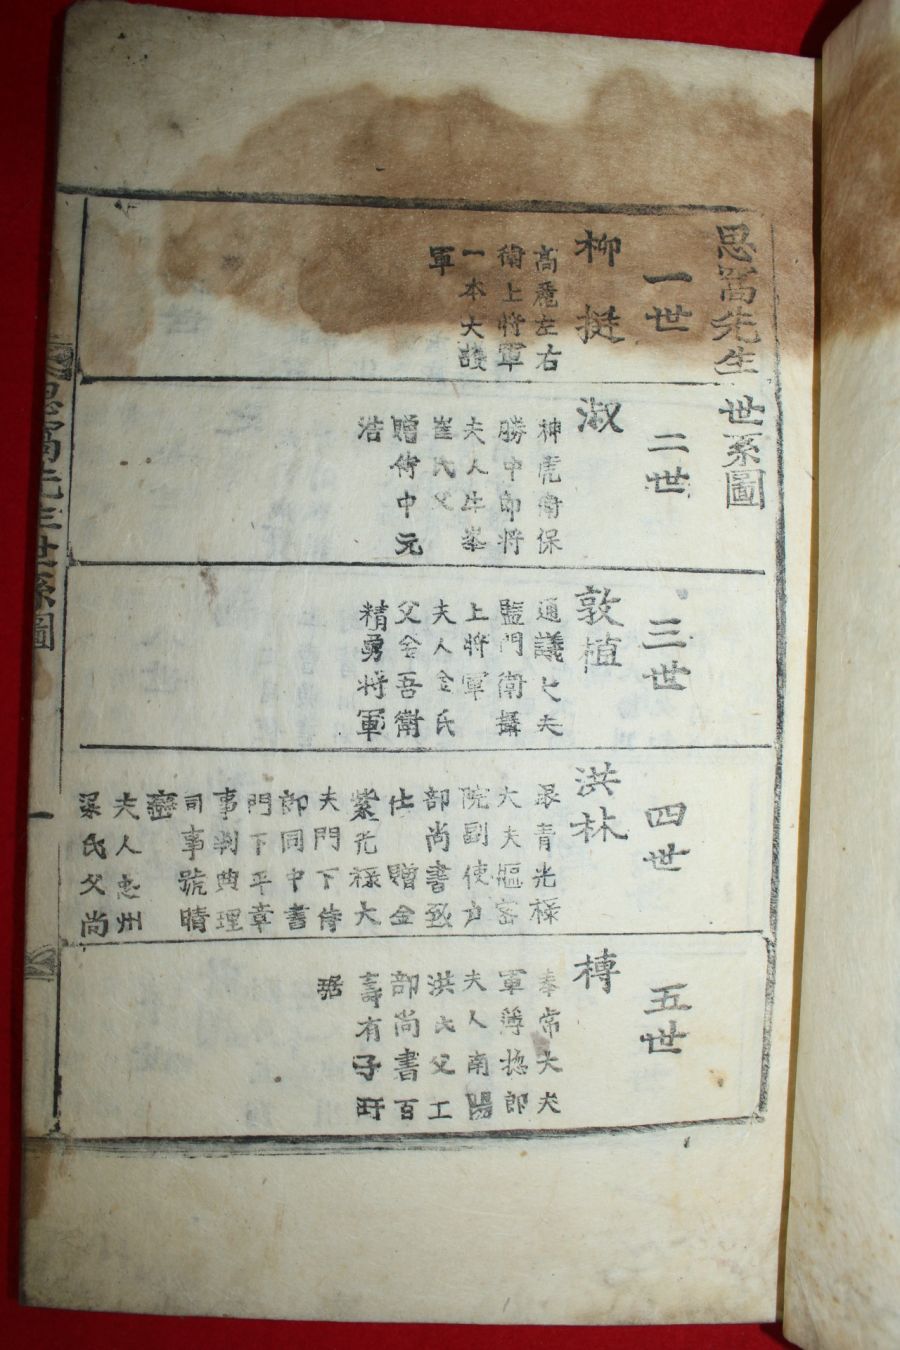 思窩先生世系圖
一世
柳挺
高麗左右
衛上將軍
一本大護
軍
二世
淑
神虎衛保
勝中郎將
夫人牛峯
崔氏父
贈侍中元
浩
三世
敦植
通議大夫
監門衛攝
上將軍
夫人金氏
父金吾衛
精勇將軍
四世
洪林
銀青光祿
大夫樞密
院副使戶
部尚書致
仕 贈金
紫光祿大
夫門下侍
郎同中書
門下平章
事判典理
司事號晴
巒
夫人忠州
梁氏父尚
五世
榑
奉常大夫
軍簿摠郎
夫人南陽
洪氏父工
部尚書百
壽有子玗
琚
思窩先生世系圖
一